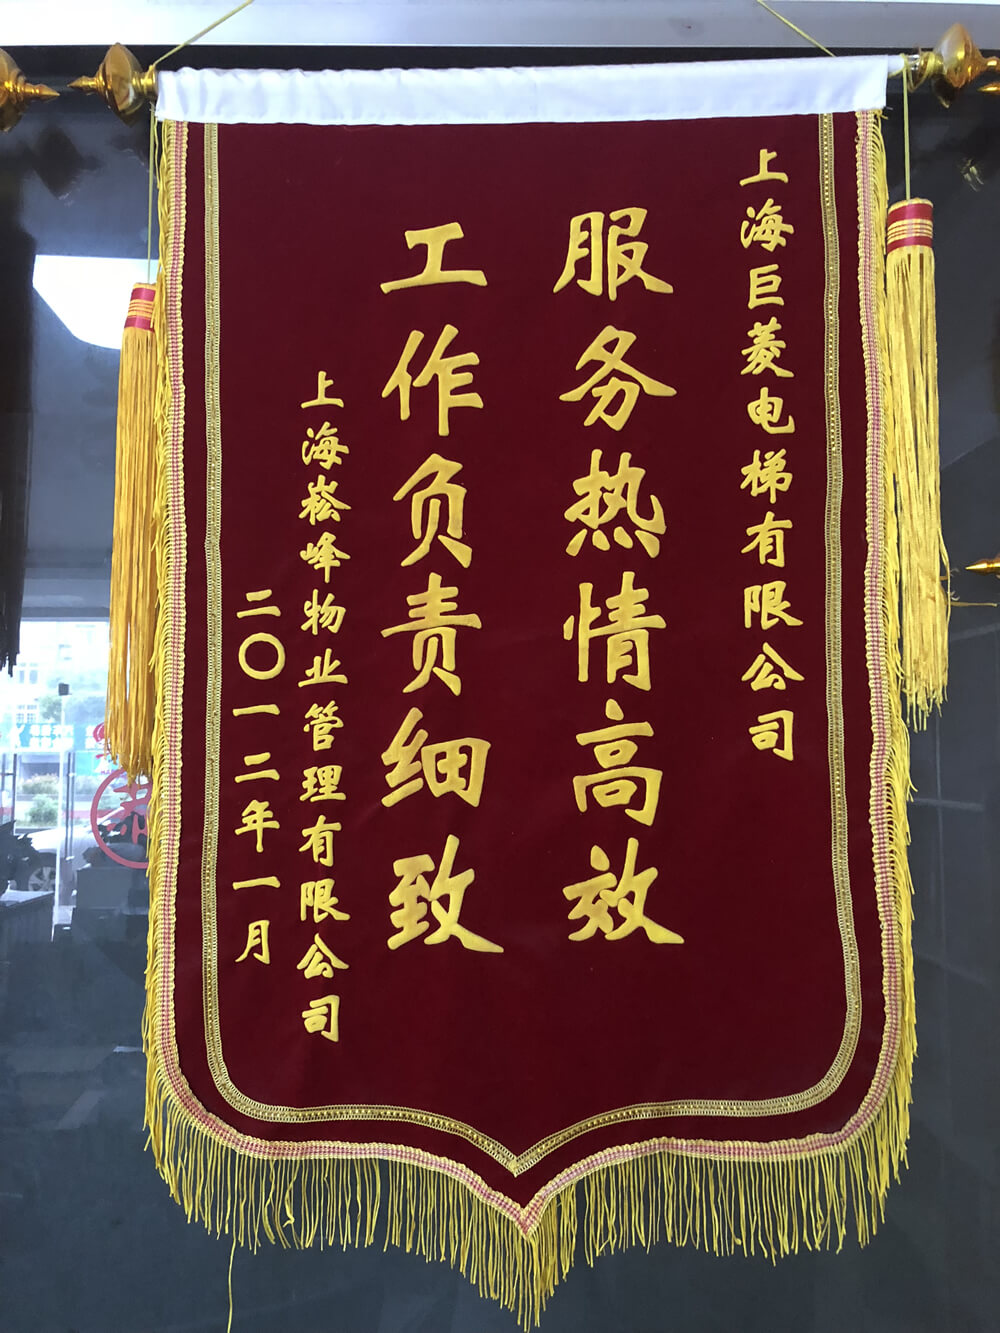 上海巨菱电梯有限公司
服务热情高效
工作负责细致
上海崧峰物业管理有限公司
二〇一二年一月